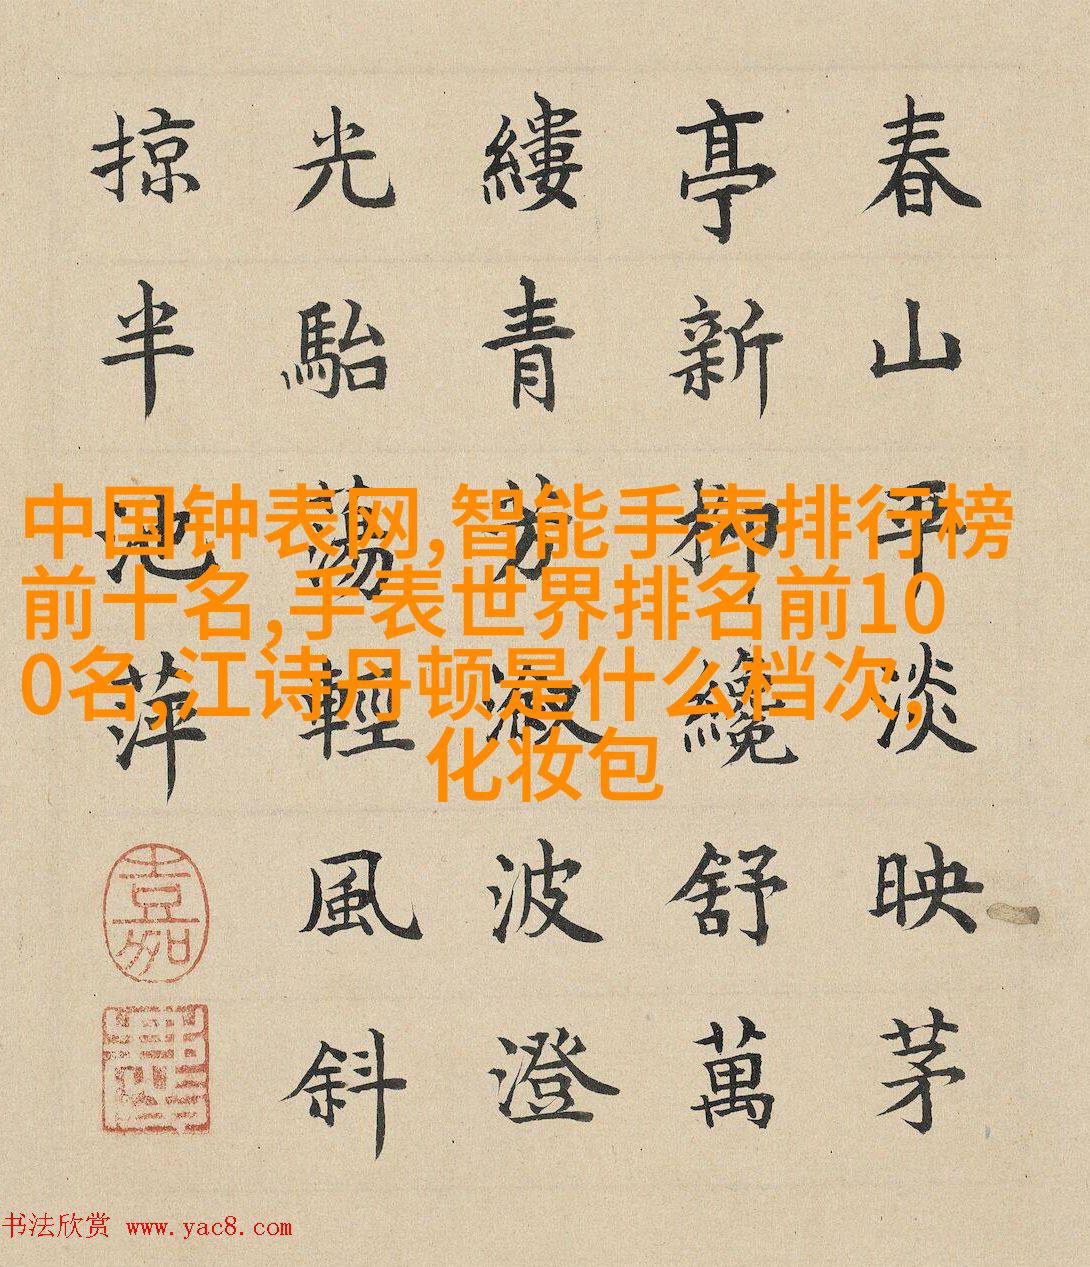 春山平淡映茅
亭新柳纔舒萬
縷青芳溆波澄
光駘蕩輕風斜
掠半池萍
嘉
中国钟表网,智能手表排行榜
前十名,手表世界排名前10
0名,江诗丹顿是什么档次,
化妆包
书法欣赏 www.yac8.com